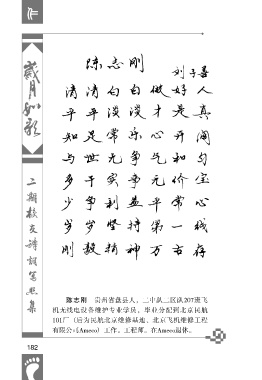 作
岁月如歌
二期校友诗词写照集
陈志刚
刘子善
清清白白做好人
平平淡淡才是真
知足常乐心开阔
与世无争气和匀
多干实事无价宝
少争利益平常心
岁岁坚持第一线
刚毅精神万古存
陈志刚 贵州省盘县人，二中队二区队207班飞
机无线电设备维护专业学员，毕业分配到北京民航
101厂（后为民航北京维修基地、北京飞机维修工程
有限公司Ameco）工作。工程师。在Ameco退休。
182